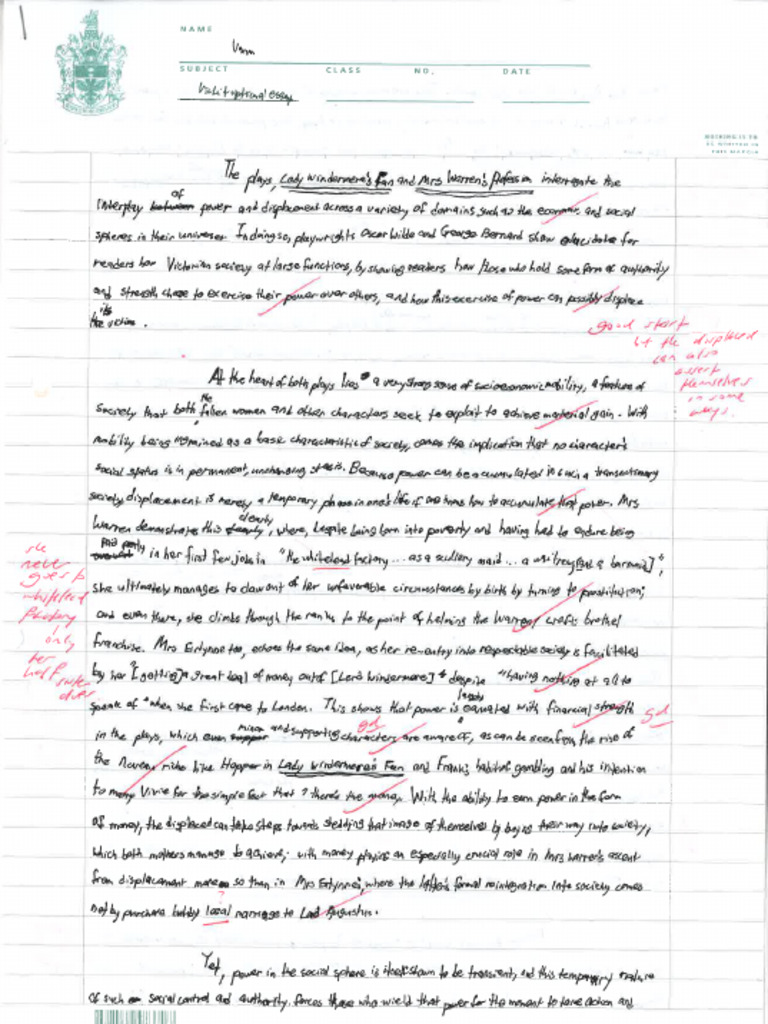 NAME
SUBJECT CLASS NO. DATE
NOTHING IS TO
BE WRITTEN IN
THIS MARGIN
The plays, Lady Windermere's Fan and Mrs Warren's Profession interrogate the
interplay between of power and displacement across a variety of domains such as the economic and social
spheres in their universes. In doing so, playwrights Oscar Wilde and George Bernard Shaw elucidate for
readers how Victorian society at large functions, by showing readers how those who hold some form of authority
and strength choose to exercise their power over others, and how this exercise of power can possibly displace
its
the victims.
good start
but the displaced
can also
assert
themselves
in some
ways.
At the heart of both plays lies a very strong sense of socioeconomic mobility, a feature of
society that both the fallen women and other characters seek to exploit to achieve material gain. With
mobility being as a base characteristic of society, comes the implication that no character's
social status is in permanent, unchanging stasis. Because power can be accumulated in such a transactionary
society displacement is merely a temporary phase in one's life if one knows how to accumulate that power. Mrs
Warren demonstrates this clearly, where, despite being born into poverty and having had to endure being
in her first few jobs in "the whitelead factory... as a scullery maid... a waitress [and a barmaid]",
she ultimately manages to claw out of her unfavorable circumstances by birth by turning to prostitution;
and even there, she climbs through the ranks to the point of helming the Warren Crofts brothel
franchise. Mrs Erlynne too, echoes the same idea, as her re-entry into respectable society is facilitated
by her "[getting] a great deal of money out of [Lord Windermere]" despite "having nothing at all to
speak of" when she first came to London. This shows that power is largely equated with financial strength
in the plays, which even minor and supporting characters are aware of, as can be seen from the rise of
the nouveau riche like Hopper in Lady Windermere's Fan and Frank's habitual gambling and his intention
to marry Vivie for the simple fact that "there's the money. With the ability to earn power in the form
of money, the displaced can take steps towards shedding that image of themselves by buying their way into society,
which both mothers manage to achieve; with money playing an especially crucial role in Mrs Warren's ascent
from displacement more so than in Mrs Erlynne's, where the latter's formal reintegration into society comes
not by purchase but by marriage to Lord Augustus.
she
never
goes to
whitelead
factory
only
her
half sister
does
gd
gd
?
Yet, power in the social sphere is shown to be transient, and this temporary nature
of such social control and authority forces those who wield that power for the moment to take action and